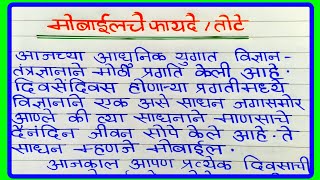 मोबाईलचे फायदे / तोटे
आजच्या आधुनिक युगात विज्ञान-
तंत्रज्ञानाने मोठी प्रगती केली आहे.
दिवसेंदिवस होणाऱ्या प्रगतीमध्ये
विज्ञानाने एक असे साधन जगासमोर
आणले की त्या साधनाने माणसाचे
दैनंदिन जीवन सोपे केले आहे. ते
साधन म्हणजे मोबाईल.
आजकाल आपण प्रत्येक दिवसाची